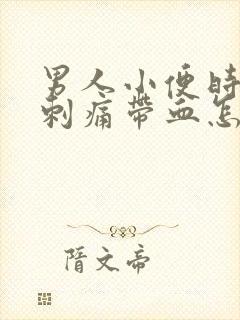 男人小便时
刺痛帶血怎
隋文帝